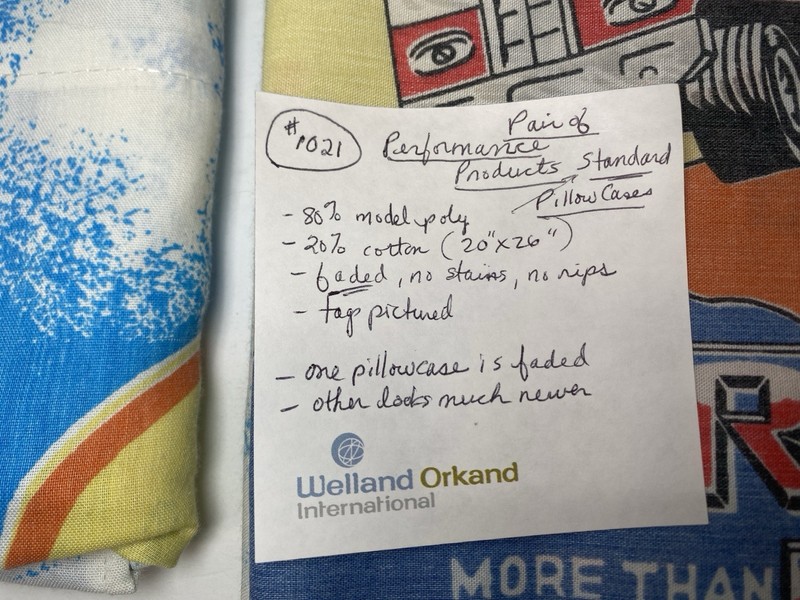 #1021
Pair of
Performance
Products Standard
Pillow Cases
- 80% model poly
- 20% cotton (20"x26")
- faded, no stains, no rips
- tags pictured
- one pillowcase is faded
- other looks much newer
Welland Orkand
International
MORE THAN